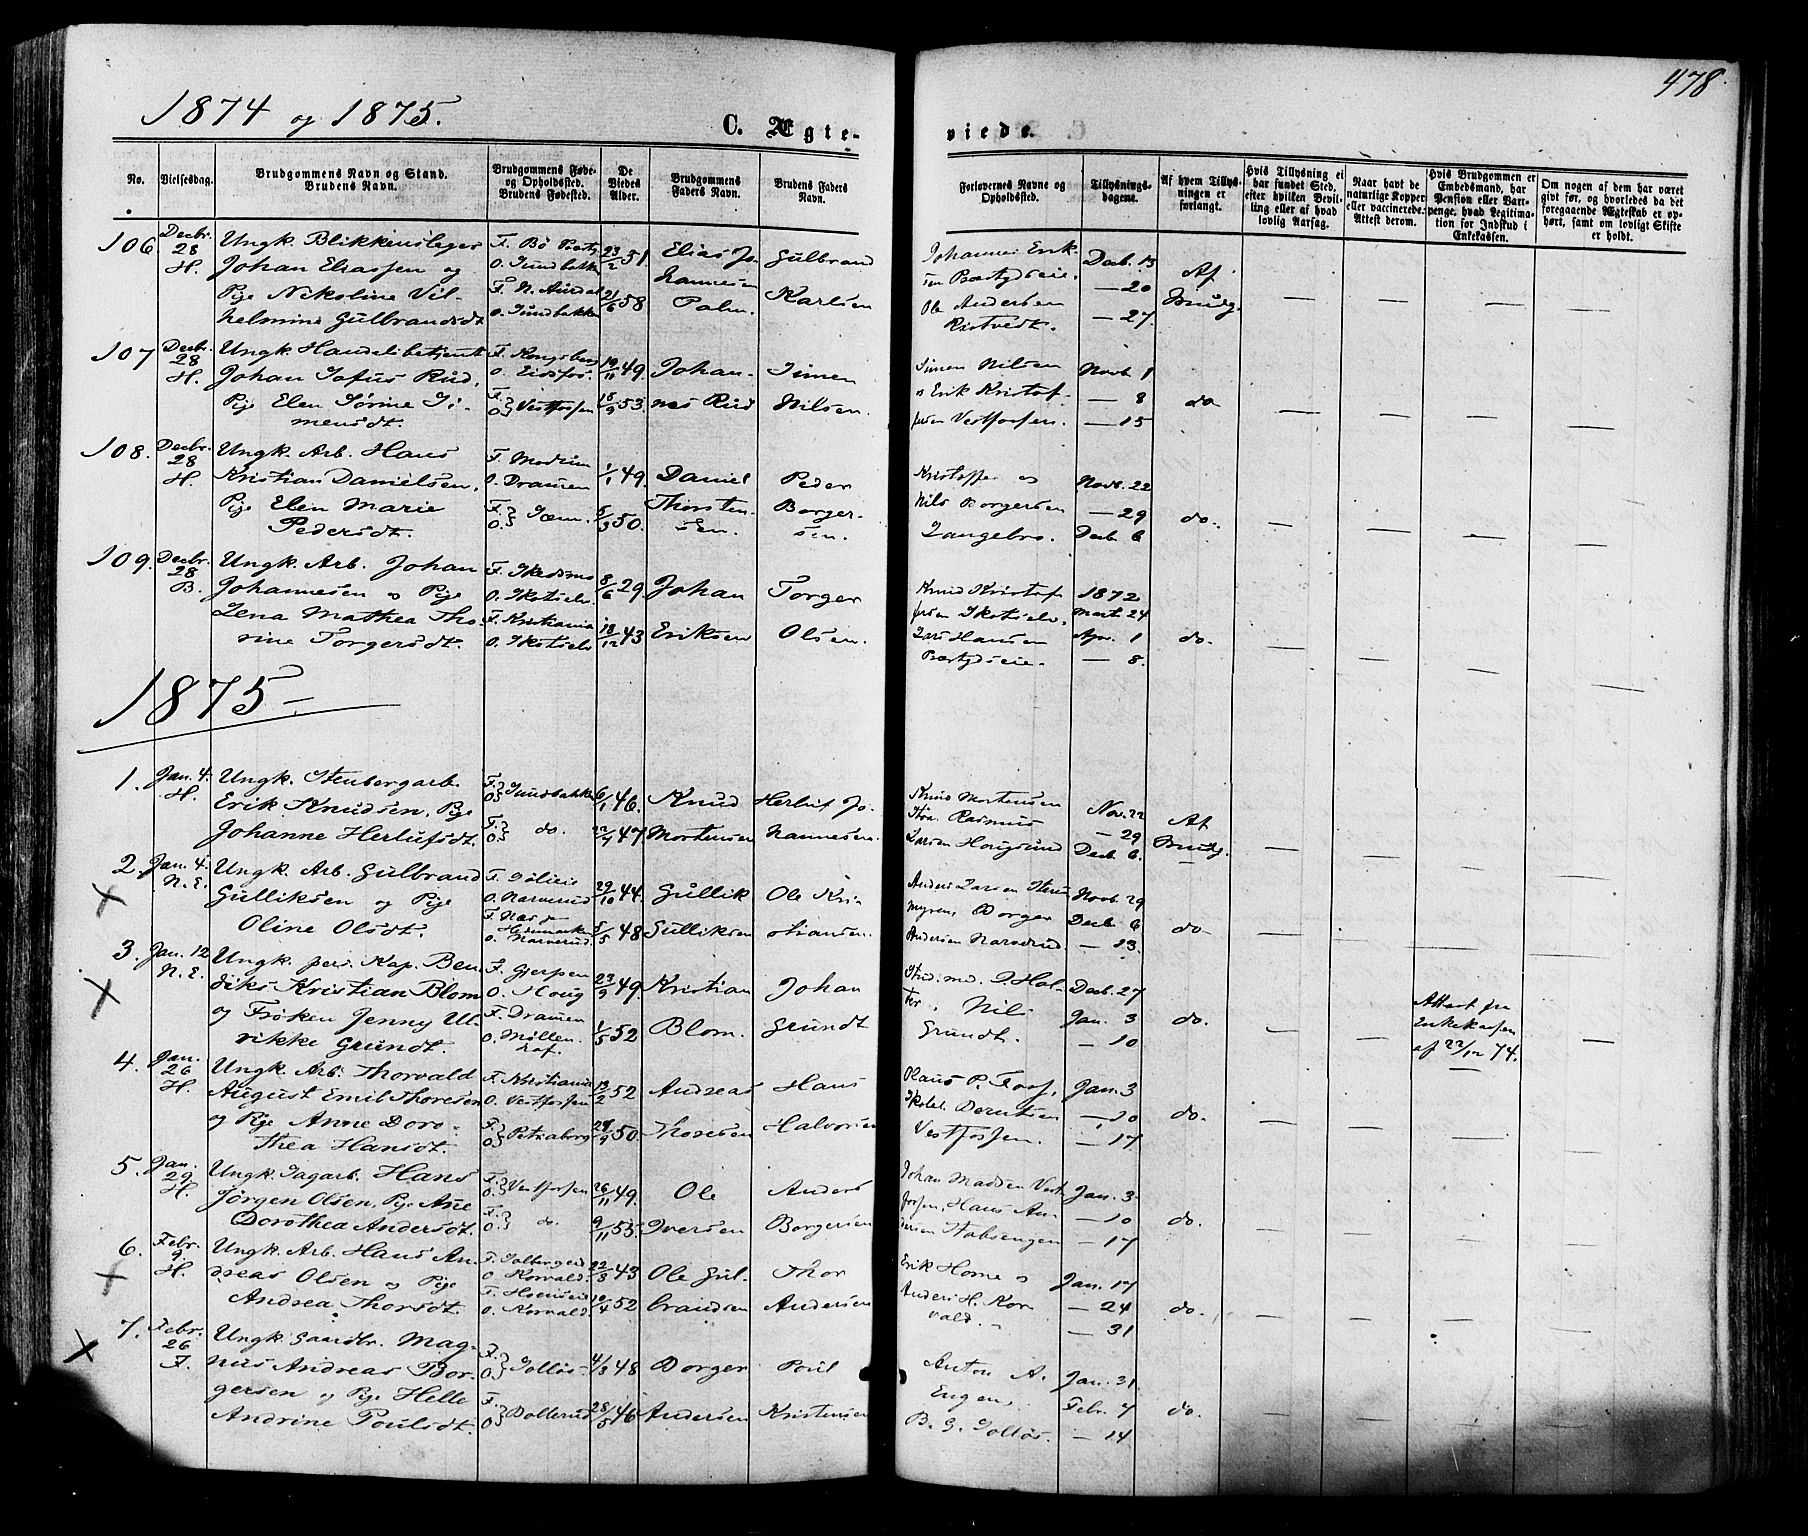 478
1874 og 1875.
C. Ægte-
viede.
No.
Vielsesdag.
Brudgommens Navn og Stand.
Brudens Navn.
Brudgommens Føde-
og Opholdssted.
Brudens Fødested.
De
Viedes
Alder.
Brudgommens
Faders Navn.
Brudens Faders
Navn.
Forlovernes Navne og
Opholdssted.
Tillysnings-
dagene.
Af hvem Tillys-
ningen er
forlangt.
Hvis Tillysning ei
har fundet Sted,
efter hvilken Bevil-
ling eller af hvad
lovlig Aarsag.
Naar havt de
naturlige Kopper
eller vaccinerede.
Attest derom.
Hvis Brudgommen er
Embedsmand, har
Pension eller Vart-
penge, hvad Legitima-
tion for Indskud i
Enkekassen.
Om nogen af dem har været
givt før, og hvorledes da det
foregaaende Ægteskab er op-
hørt, samt om lovligt Skifte
er holdt.
106 Decbr. 28 H.
Ungk. Blikkenslager
Johan Eliassen og
Pige Nikoline Vil-
helmine Gulbrandsdt.
F. Bø
O. Sundbakken
F. N. Aurdal
O. Sundbakken
23/2 51.
21/6 58
Elias Jo-
hannesen
Palm
Gulbrand
Karlsen
Johannes Erik-
sen Bærtydseie.
Ole Andersen
Ristvedt.
Decb. 13
— 20
— 27.
Af
Brudg.
107 Decbr. 28 H.
Ungk. Handelsbetjent
Johan Sofus Rud,
Pige Elen Sørine Si-
mensdt.
F. Kongsberg
O. Eidsfos.
F. O. Vestfossen
19/11 49.
18/9 53.
Johan-
nes Rud
Simen
Nilsen.
Simen Nilsen
o Erik Kristof-
fersen Vestfossen.
Novb. 1
— 8
— 15
do
108. Decbr. 28 H.
Ungk. Arb. Hans
Kristian Danielsen,
Pige Elen Marie
Pedersdt.
F. Modum
O. Dramen
F. O. Sem.
1/1 49.
5/3 50.
Daniel
Thorsten-
sen.
Peder
Borger-
sen.
Kristoffer og
Nils Borgersen
Langebro.
Novb. 22
— 29
Decb. 6
do.
109. Decbr. 28 B.
Ungk. Arb. Johan
Johannesen o Pige
Lena Mathea Tho-
rine Torgersdt.
F. Skedsmo
O. Skotselv.
F. Kristiania
O. Skotselv
8/6 29.
18/12 43
Johan
Eriksen
Torger
Olsen.
Knud Kristof-
fersen Skotselv.
Lars Hansen
Bærtydseie.
1872
Marts 24
Apr. 1
— 8.
do.
1875
1. Jan. 4. H.
Ungk. Stenbergarb.
Erik Knudsen, Pige
Johanne Herlufsdt.
F. O. Sundbakken
F. O. do.
6/1 46.
22/7 47
Knud
Mortensen
Herluf Jo-
hannesen.
Knud Mortensen
Støa. Rasmus
Larsen Hougsund
Nov. 22
— 29
Decb. 6.
Af
Brudg.
2. Jan. 4. N.E.
Ungk. Arb. Gulbrand
Gulliksen og Pige
Oline Olsdt.
O. Narverud
F. Næs p
Hedemarken
O. Narverud.
29/10 44.
5/5 48
Gullik
Gulliksen
Ole Kri-
stiansen.
Anders Larsen
myren, Borger
Andersen Narverud
Novb. 29
Decb. 6
— 13.
do
3. Jan. 12 N.E.
Ungk. pers. Kap. Ben-
diks Kristian Blom
og Frøken Jenny Ul-
rikke Grundt.
F. Gjerpen
O. Houg
F. Dramen
O. Møllen-
hof.
23/9 49.
1/5 52
Kristian
Blom.
Johan
Grundt
Stud. med. P. Hol-
ter, Nils
Grundt.
Decb. 27
Jan. 3
— 10
do.
Attest fra
Enkekassen
af 22/12 74.
4. Jan. 26 H.
Ungk. Arb. Thorvald
August Emil Thoresen
og Pige Anne Doro-
thea Hansdt.
F. Kristiania
O. Vestfossen
F. O. Petriaborg
13/2 52
29/9 50.
Andreas
Thoresen
Hans
Halvorsen
Olaus P. Foss,
Skolel. Berntsen
Vestfossen.
Jan. 3
— 10
— 17
do.
5. Jan. 29 H.
Ungk. Sagarb. Hans
Jørgen Olsen, Pige Ane
Dorothea Andersdt.
F. O. Vestfossen
F. O. do.
26/11 49.
9/11 55.
Ole
Iversen
Anders
Borgersen
Johan Madsen Vest-
fossen, Hans An-
dersen Stabsengen
Jan. 3
— 10
— 17
do.
6. Febr. 9. H.
Ungk. Arb. Hans An-
dreas Olsen og Pige
Andrea Thorsdt.
F. Solbergeie
O. Korvald.
F. Hoenseie
O. Korvald.
22/3 43
10/4 52
Ole Gul-
brandsen
Thor
Andersen
Erik Horne o
Anders H. Kor-
vald.
Jan. 17
— 24
— 31
do.
7. Febr. 26 F.
Ungk. Gaardbr. Mag-
nus Andreas Bor-
gersen og Pige Helle
Andrine Poulsdt.
F. O. Solløs
F. O. Bollerud
4/3 48
28/5 46
Borger
Andersen
Poul
Kristensen
Anton A.
Engen,
B. G. Solløs.
Jan. 31
Febr. 7
— 14
do.